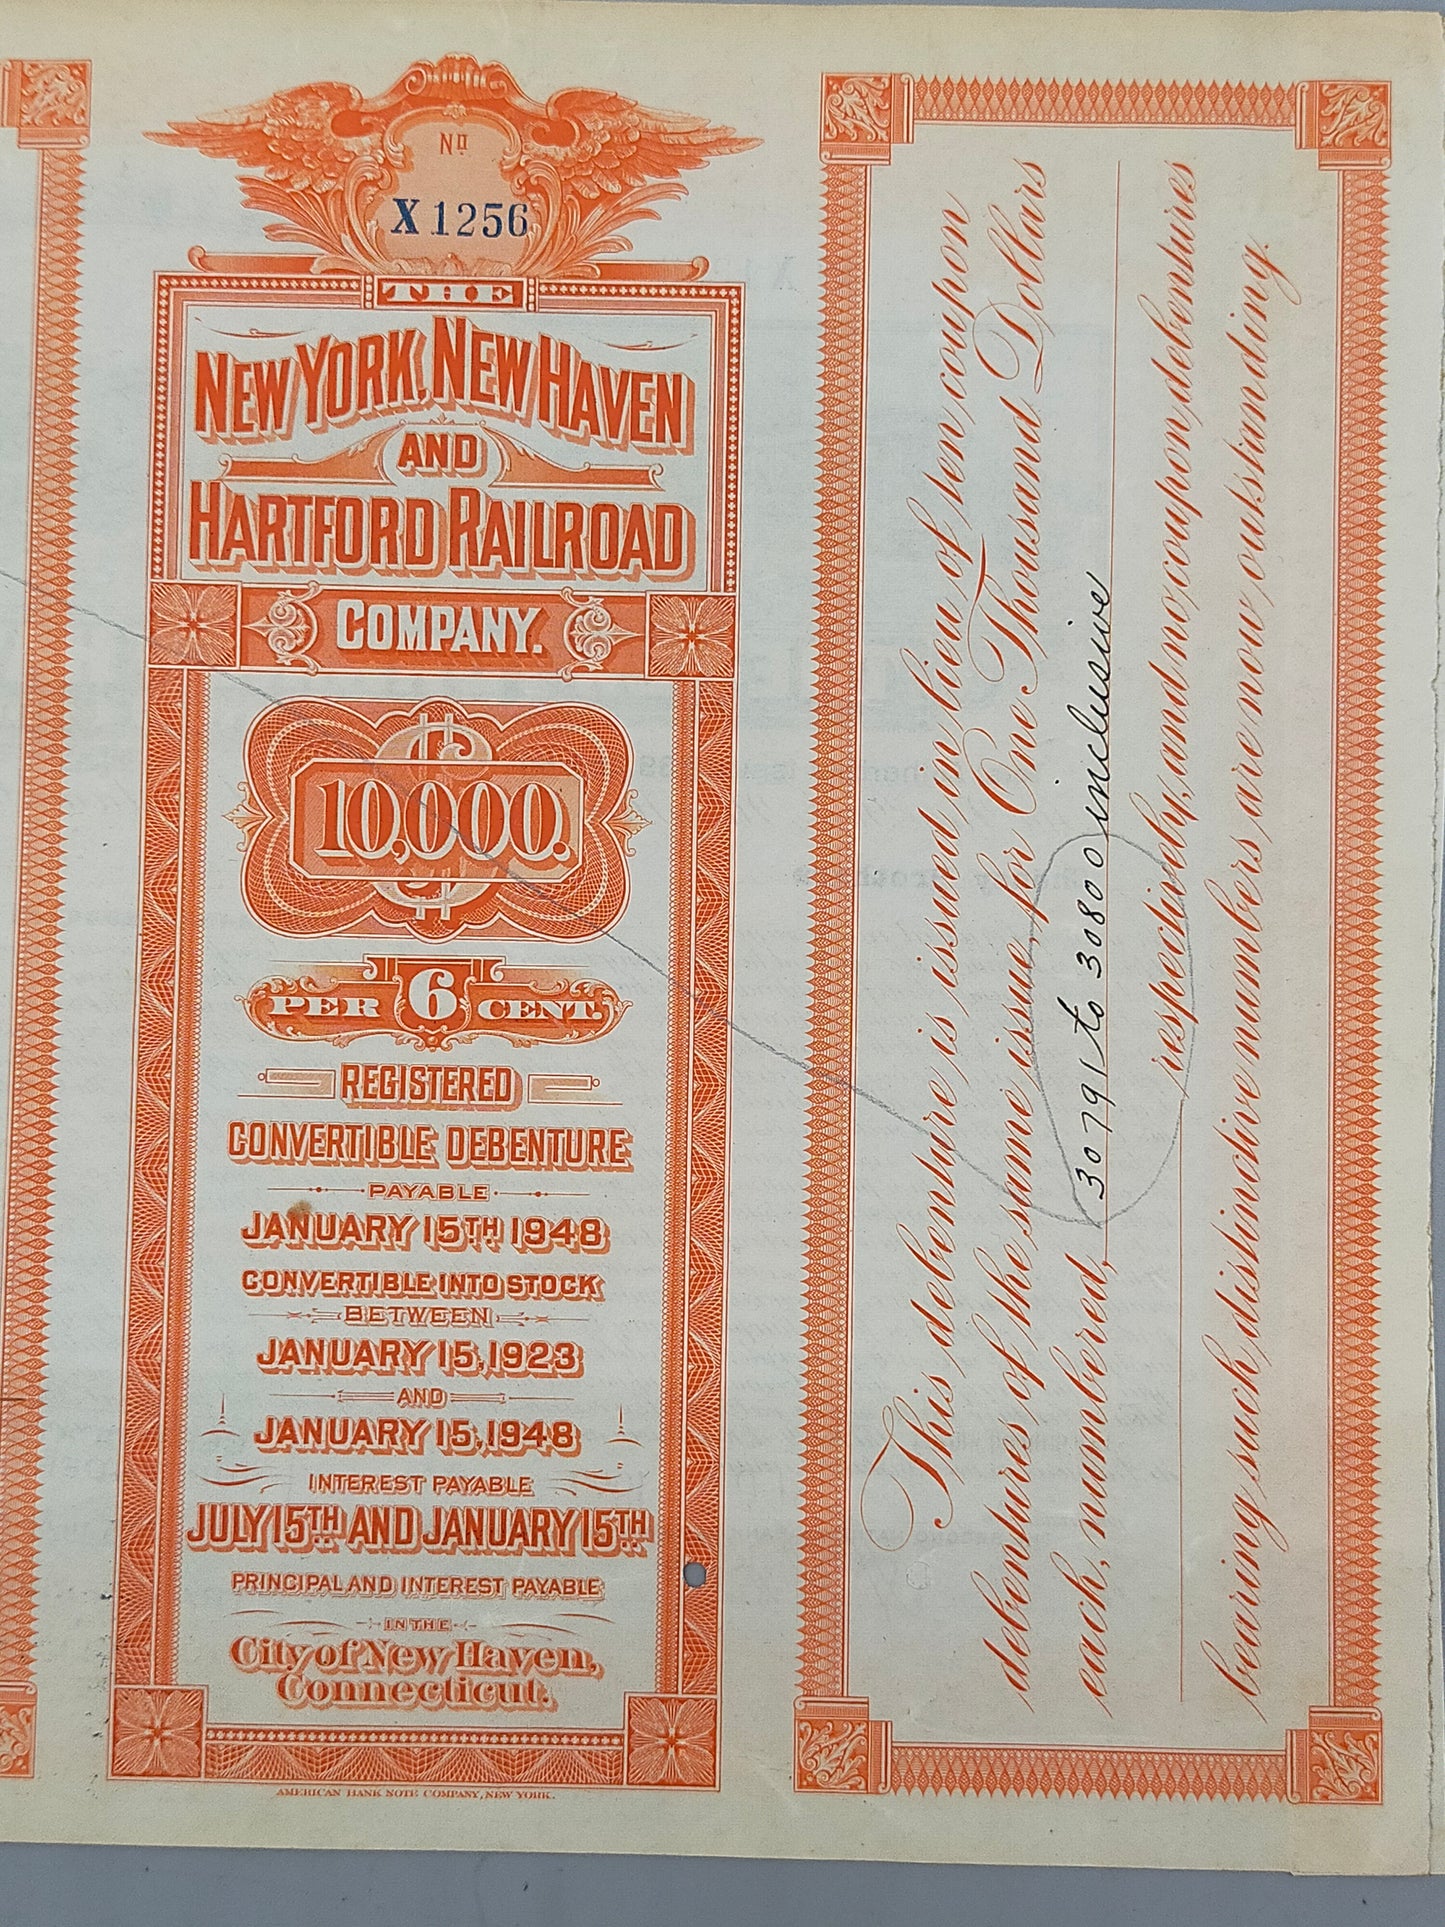 No
X1256
THE
NEW YORK, NEW HAVEN
AND
HARTFORD RAILROAD
COMPANY.
$
10,000.
PER 6 CENT.
REGISTERED
CONVERTIBLE DEBENTURE
PAYABLE
JANUARY 15TH 1948
CONVERTIBLE INTO STOCK
BETWEEN
JANUARY 15, 1923
AND
JANUARY 15, 1948
INTEREST PAYABLE
JULY 15TH AND JANUARY 15TH
PRINCIPAL AND INTEREST PAYABLE
IN THE
City of New Haven,
Connecticut.
AMERICAN BANK NOTE COMPANY, NEW YORK.
This debenture is issued in lieu of ten coupon
debentures of the same issue, for One Thousand Dollars
each, numbered, 30791 to 30800 inclusive
respectively, and no coupon debentures
bearing such distinctive numbers are now outstanding.